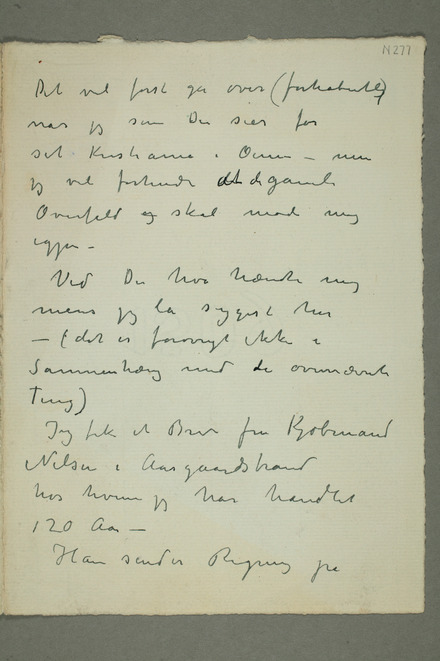 N 277
Det vil först gå over (forhåbentlig)
når jeg som De sier får
set Kristiania i Öinene – men
jeg vil forhindre at de gamle
Overfald skal made mig
igjen –
Ved De hva hændte mig
mens jeg lå sygest her
– (det er forövrigt ikke i
Sammenhæng med de ovennævnte
Ting)
Jeg fik et Brev fra Kjöbmand
Nilsen i Aasgaardstrand
hos hvem jeg har handlet
i 20 Aar –
Han sender Regning på